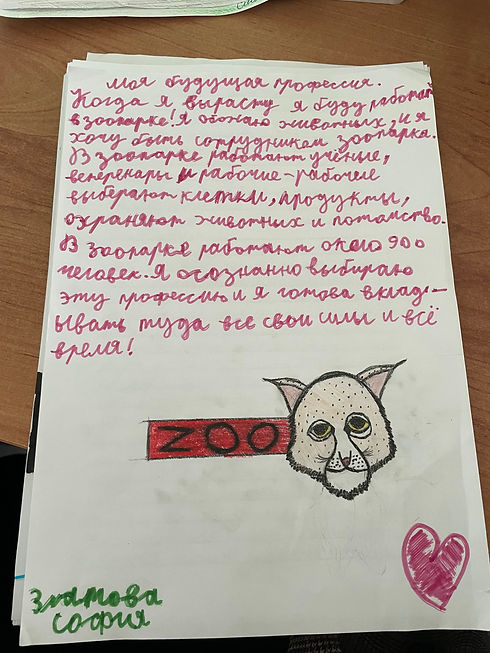 Моя будущая профессия.
Когда я вырасту я буду работать
в зоопарке! Я обожаю животных, и я
хочу быть сотрудником зоопарка.
В зоопарке работают учёные,
ветеренары и рабочие-рабочие
выберают клетки, продукты,
охраняют животных и потомство.
В зоопарке работают около 900
человек. Я осознанно выбираю
эту профессию и я готова вклад-
ывать туда все свои силы и всё
время!
ZOO
Златова
София